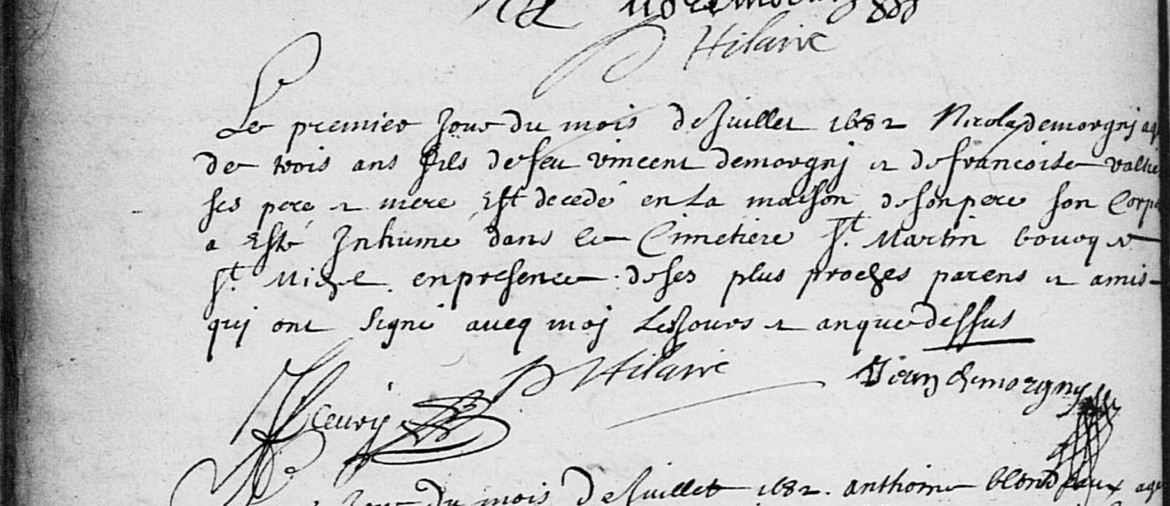 Hilaire
Le premier Jour du mois de Juillet 1682 Nicolas demorgnj
de trois ans fils de feu vincent demorgnj et de francoise
ses pere et mere Est decedé en La maison de son pere son Corps
a Esté Inhumé dans le Cimetiere St. Martin bourg
St. Michel en presence de ses plus proches parens et amis
qui ont signé avecq moj Les Jours et an que dessus
P Hilaire Jean demorgny
fleury
Jour du mois de Juillet 1682. anthoine blondeaux